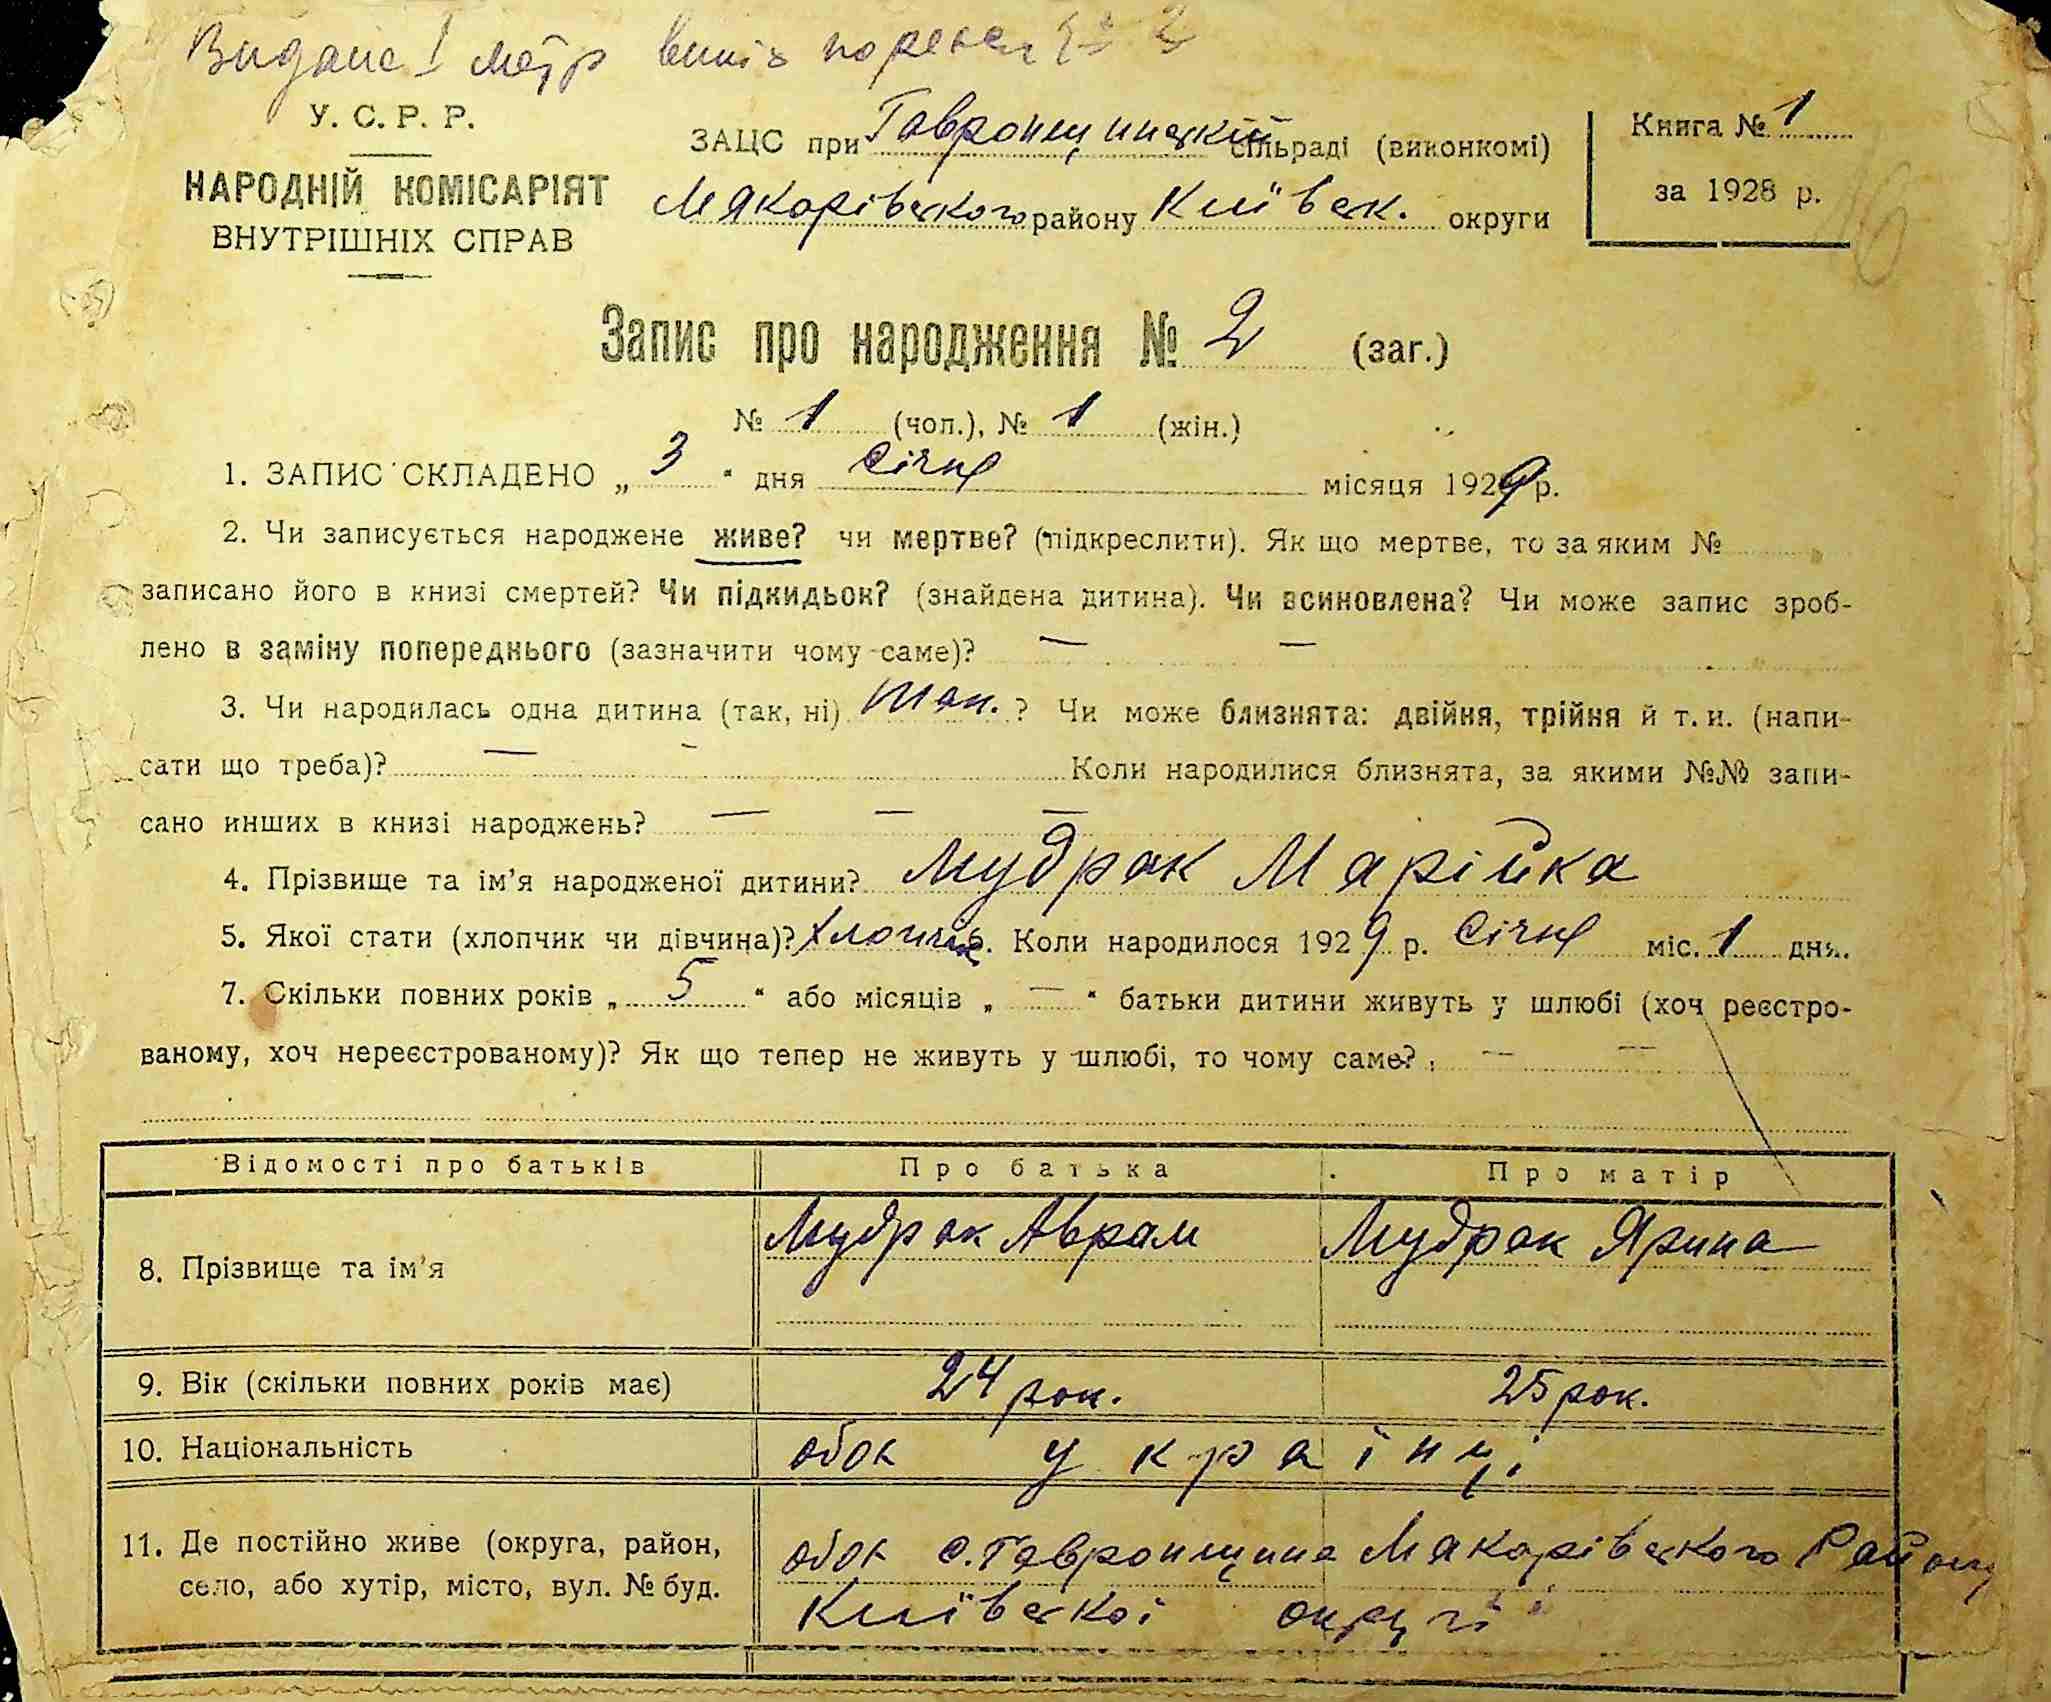 Видане 1 метр
У. С. Р. Р.
НАРОДНІЙ КОМІСАРІЯТ
ВНУТРІШНІХ СПРАВ
ЗАЦС при Гавронщинській сільраді (виконкомі)
Макарівського району Київськ. округи
Книга № 1
за 1928 р.
Запис про народження № 2 (заг.)
№ 1 (чол.), № 1 (жін.)
1. ЗАПИС СКЛАДЕНО „3“ дня Січня місяця 1929 р.
2. Чи записується народжене живе? чи мертве? (підкреслити). Як що мертве, то за яким №
записано його в книзі смертей? Чи підкидьок? (знайдена дитина). Чи всиновлена? Чи може запис зроб-
лено в заміну попереднього (зазначити чому саме)? — —
3. Чи народилась одна дитина (так, ні) так. ? Чи може близнята: двійня, трійня й т. и. (напи-
сати що треба)? — - Коли народилися близнята, за якими №№ запи-
сано инших в книзі народжень? — — —
4. Прізвище та ім’я народженої дитини? Мудрак Марійка
5. Якої стати (хлопчик чи дівчина)? хлопчик. Коли народилося 1929 р. Січня міс. 1 дня.
7. Скільки повних років „5“ або місяців „—“ батьки дитини живуть у шлюбі (хоч реєстро-
ваному, хоч нереєстрованому)? Як що тепер не живуть у шлюбі, то чому саме? — —
Відомості про батьків Про батька Про матір
8. Прізвище та ім’я Мудрак Аврам Мудрак Ярина
9. Вік (скільки повних років має) 24 рок. 25 рок.
10. Національність обоє українці
11. Де постійно живе (округа, район, обоє с. Гавронщина Макарівського Району
село, або хутір, місто, вул. № буд. Київської округи